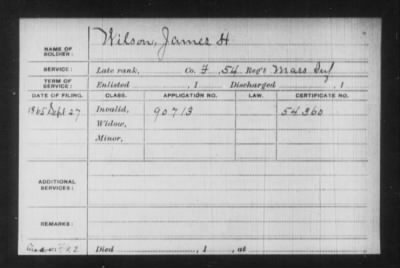 Wilson, James H
NAME OF SOLDIER:
SERVICE: Late rank, , Co. F, 54 Reg't Mass Inf
TERM OF SERVICE: Enlisted , 1 Discharged , 1
DATE OF FILING. CLASS. APPLICATION NO. LAW. CERTIFICATE NO.
1865 Sept 27 Invalid, 90713 54360
Widow,
Minor,
ADDITIONAL SERVICES:
REMARKS:
Died , 1 , at